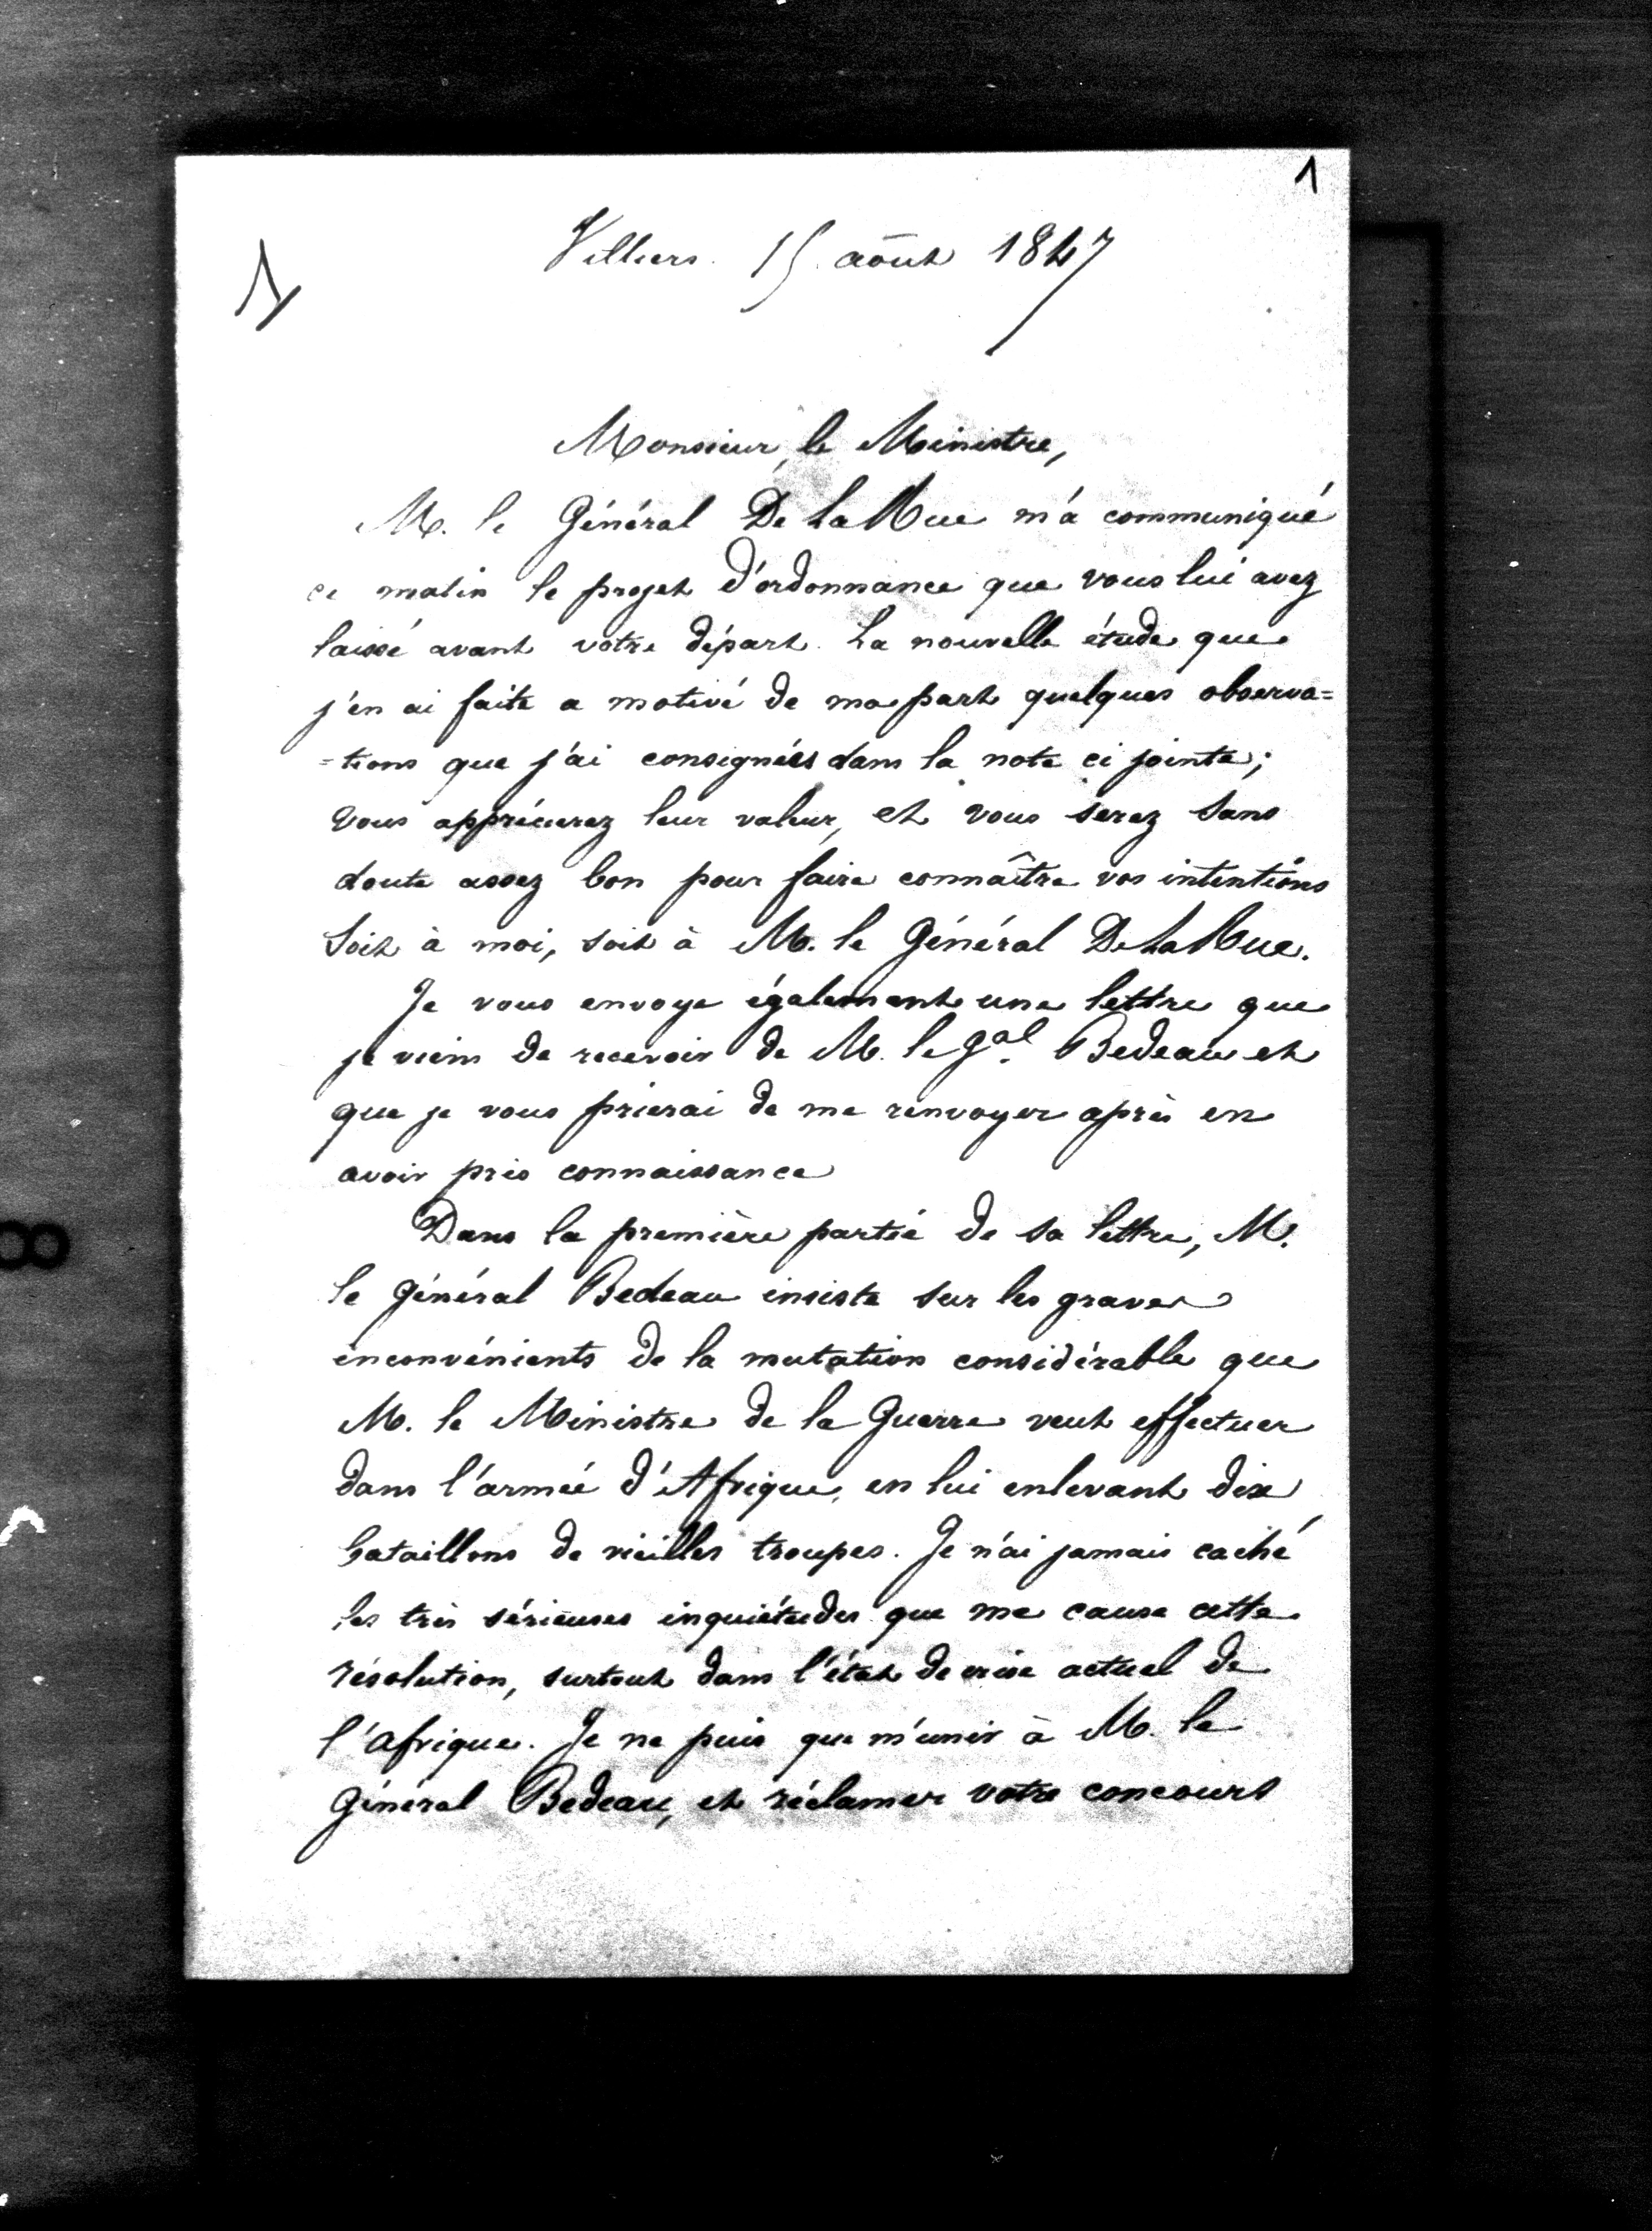 1
1
Villiers. 15 août 1847
Monsieur le Ministre,
M. le Général De La Rue m'a communiqué
ce matin le projet d'ordonnance que vous lui avez
laissé avant votre départ. La nouvelle étude que
j'en ai faite a motivé de ma part quelques observa=
=tions que j'ai consignées dans la note ci jointe;
vous apprécierez leur valeur, et vous serez sans
doute assez bon pour faire connaître vos intentions
soit à moi, soit à M. le Général De La Rue.
Je vous envoye également une lettre que
je viens de recevoir de M. le Gal. Bedeau et
que je vous prierai de me renvoyer après en
avoir pris connaissance
Dans la première partie de sa lettre, M.
le Général Bedeau insiste sur les graves
inconvénients de la mutation considérable que
M. le Ministre de la Guerre veut effectuer
dans l'armée d'Afrique, en lui enlevant dix
bataillons de vieilles troupes. Je n'ai jamais caché
les très sérieuses inquiétudes que me cause cette
résolution, surtout dans l'état de crise actuel de
l'Afrique. Je ne puis que m'unir à M. le
Général Bedeau, et réclamer votre concours
8